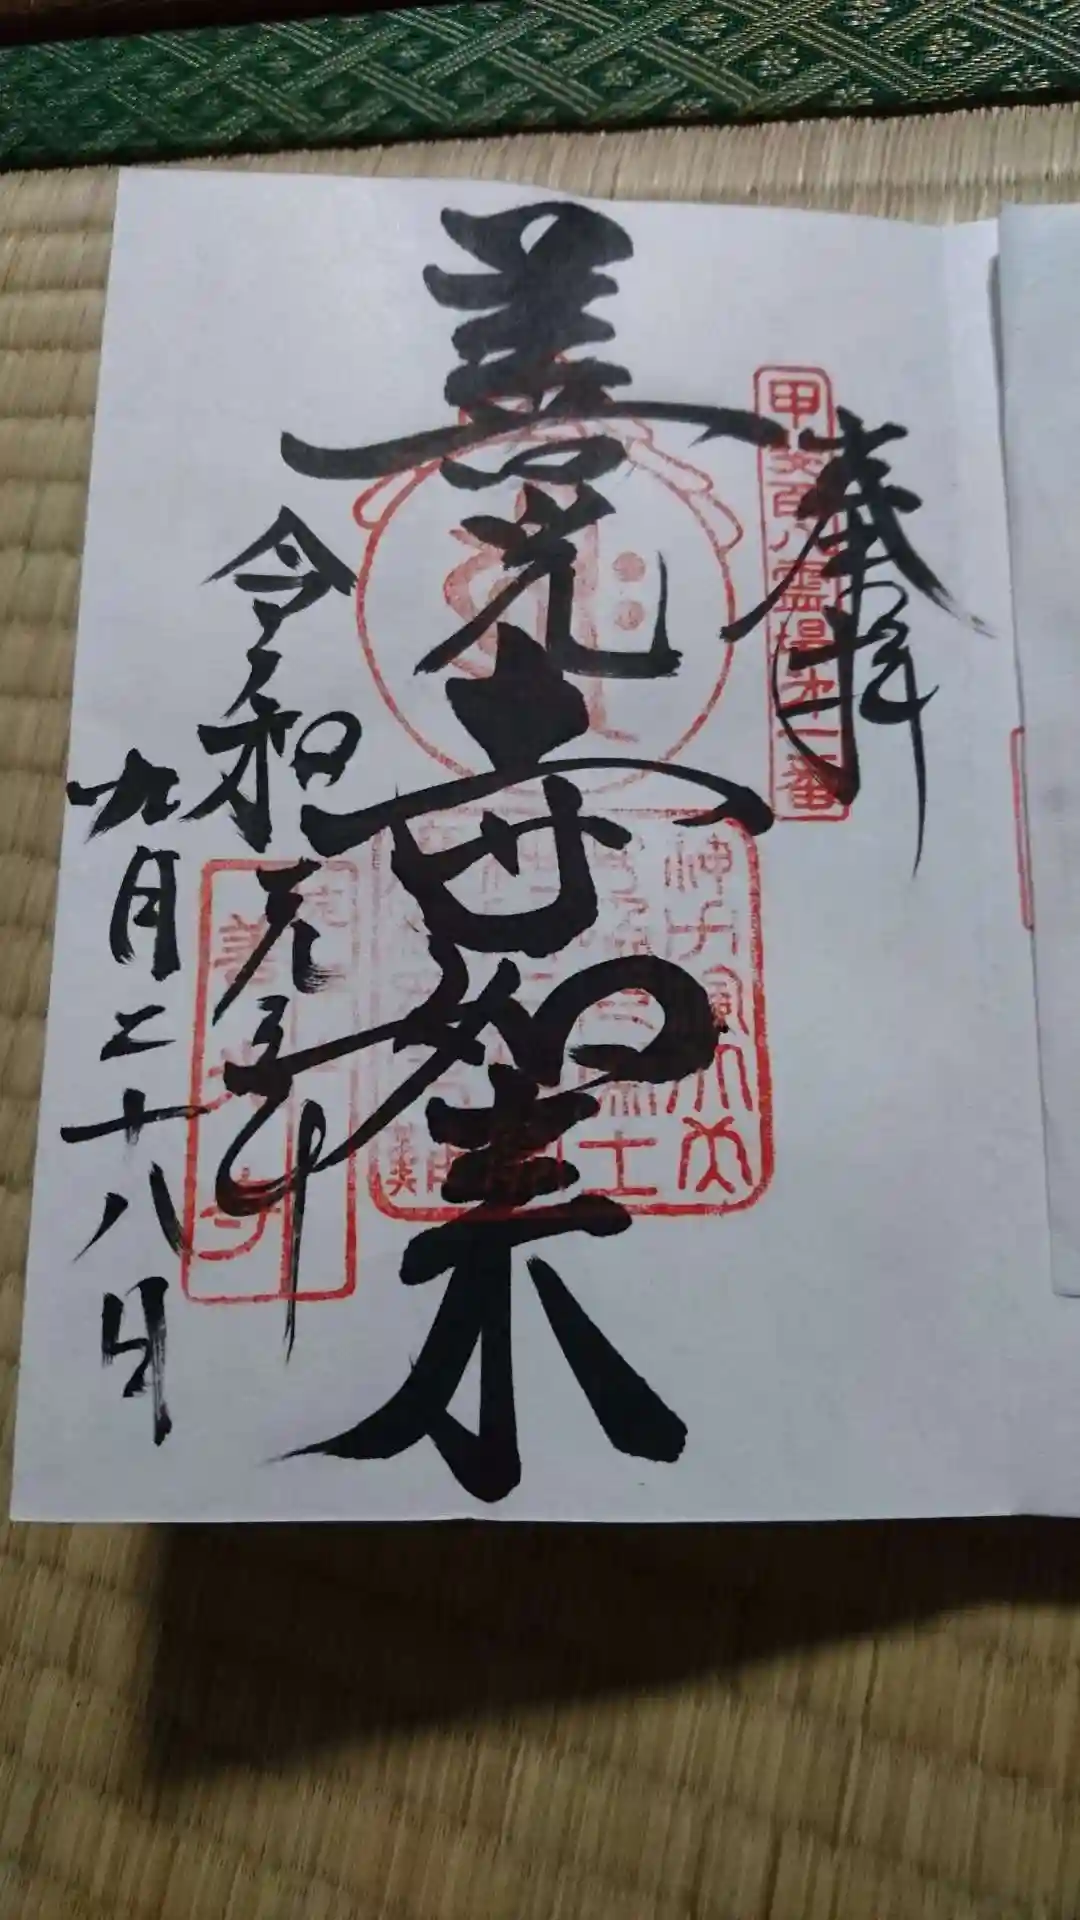 奉拝
甲斐百八霊場第一番
善光寺如来
令和元年
九月二十八日
善光寺